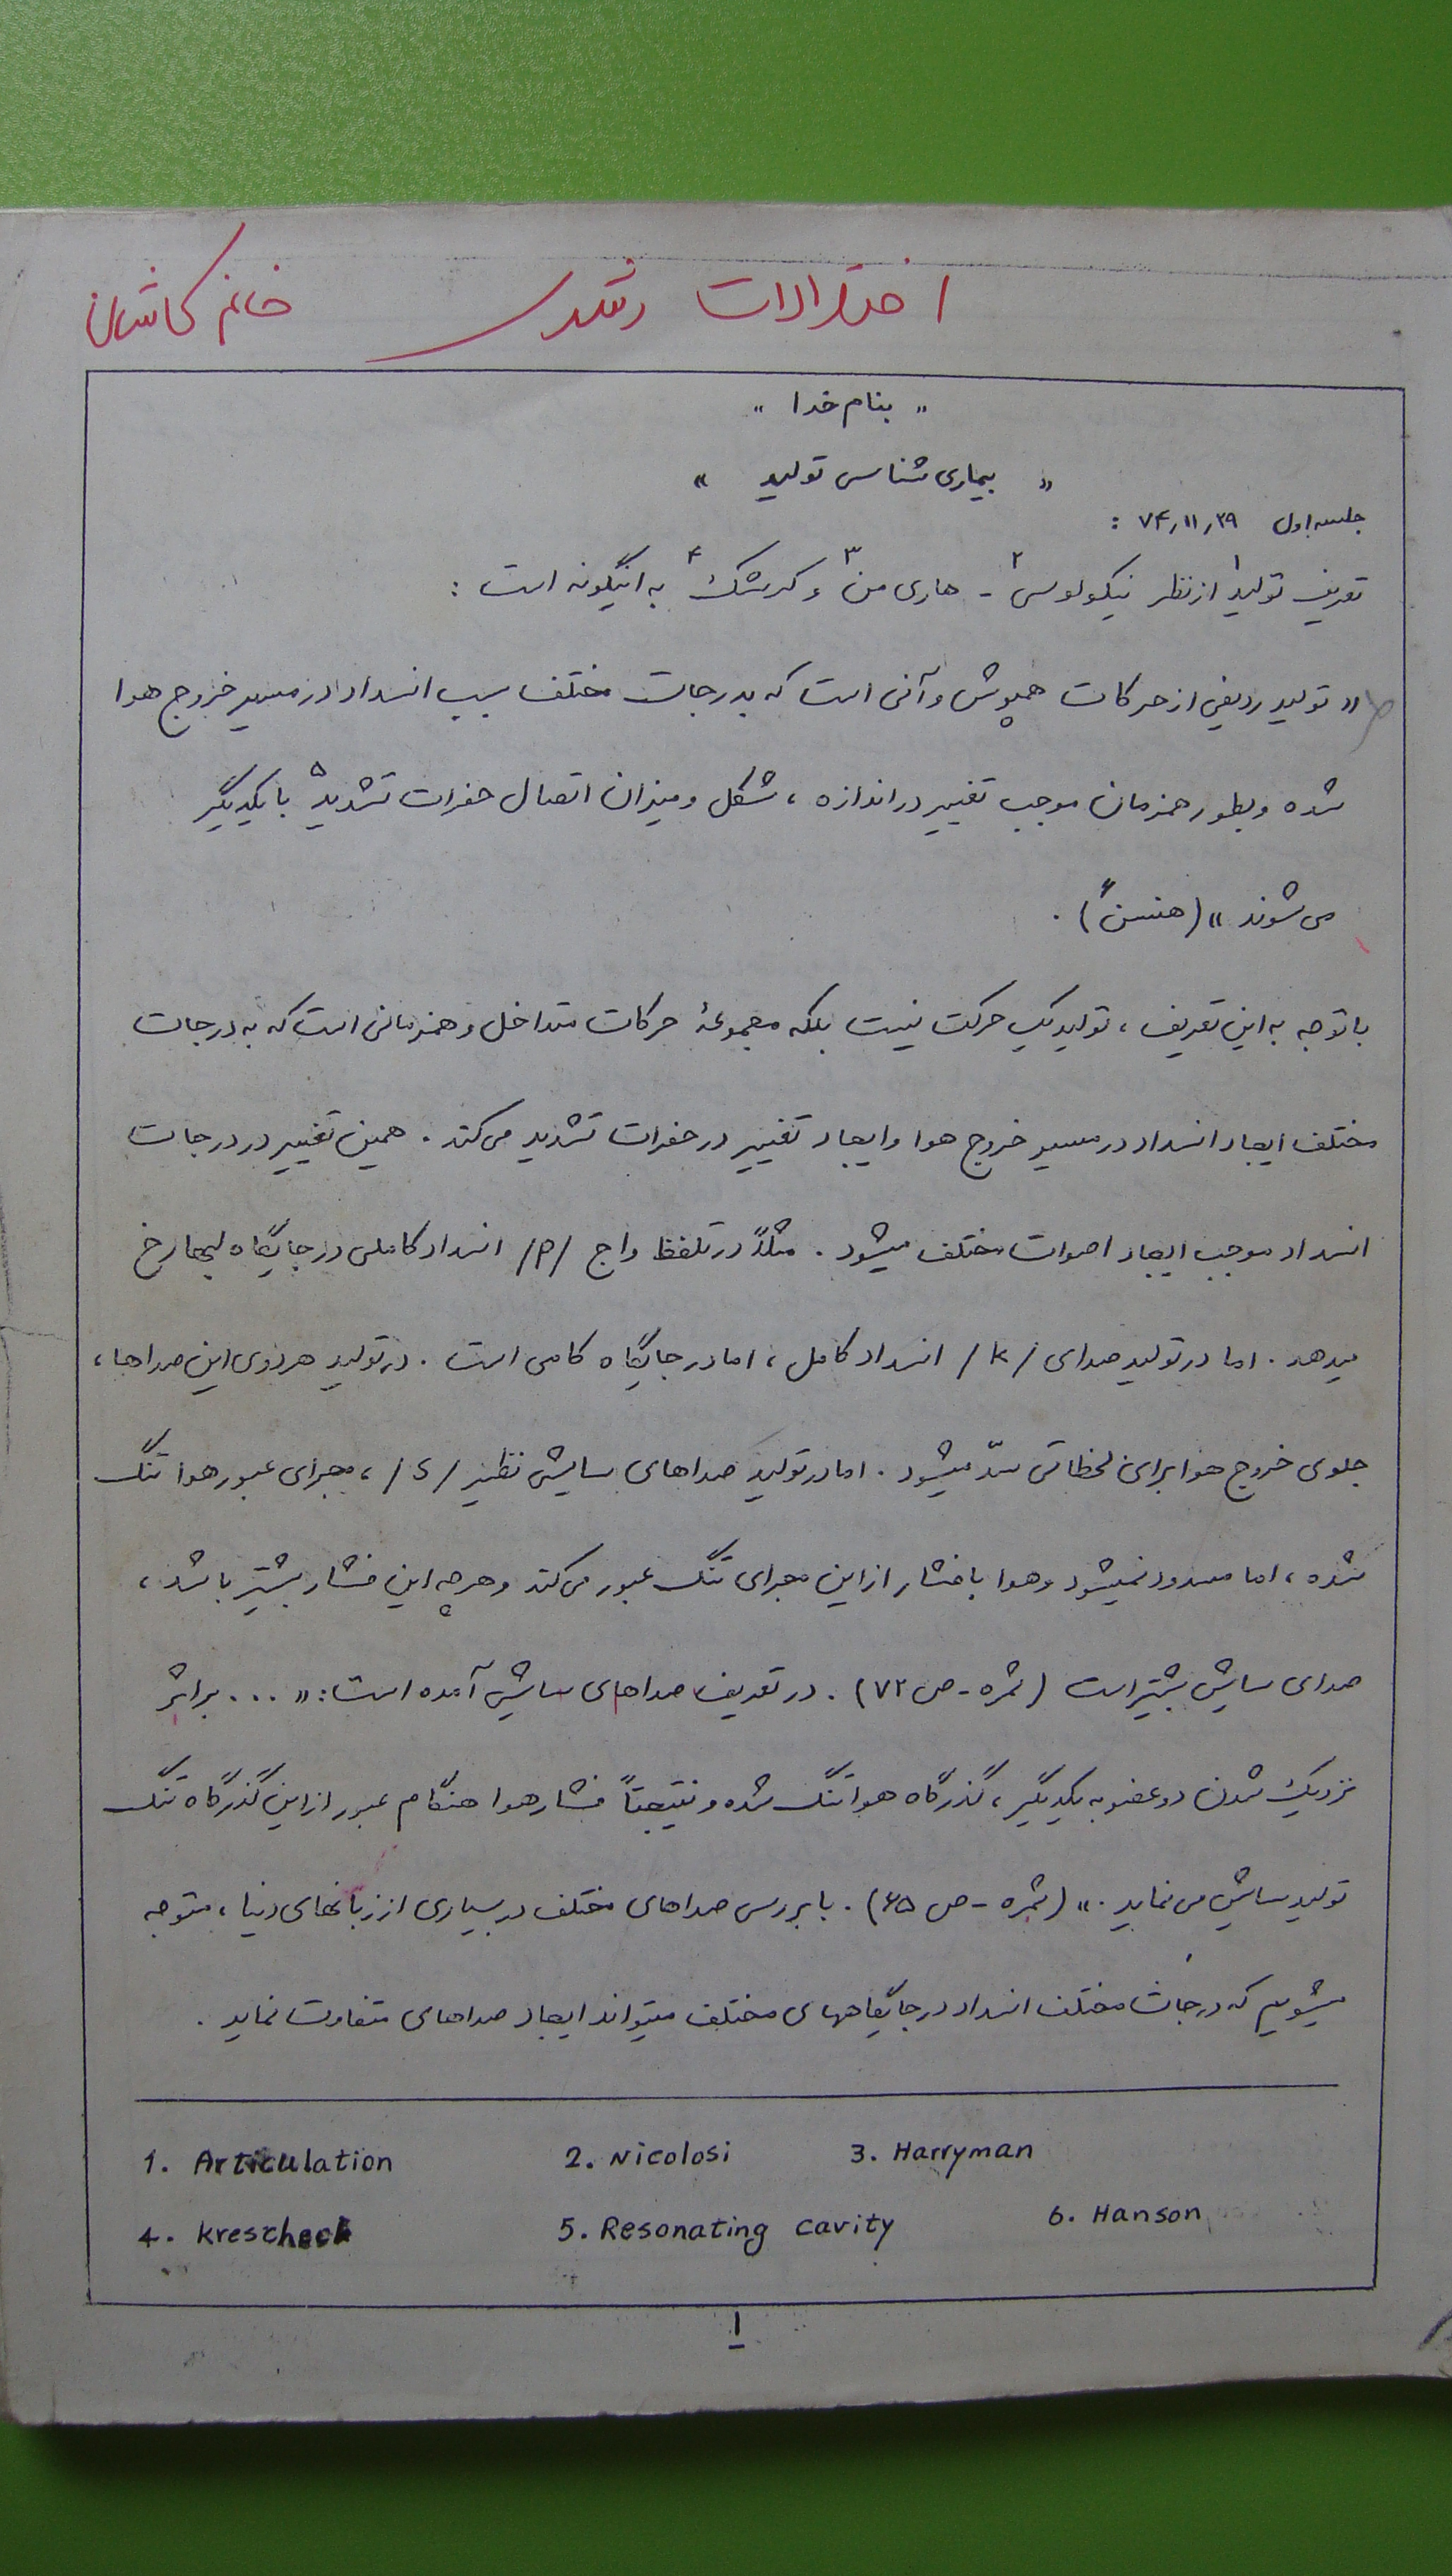 اختلالات رشدی خانم کاشان
" بنام خدا "
" بیماری شناسی تولید "
جلسه اول ۷۴/۱۱/۲۹ :
تعریف تولید۱ از نظر نیکولوسی۲ - هاری من۳ و کرشک۴ به اینگونه است :
" تولید ردیفی از حرکات همپوش و آنی است که بدرجات مختلف سبب انسداد در مسیر خروج هوا
شده و بطور همزمان موجب تغییر در اندازه ، شکل و میزان اتصال حفرات تشدید۵ با یکدیگر
می شوند " (هنسن۶) .
با توجه به این تعریف ، تولید یک حرکت نیست بلکه مجموعهٔ حرکات متداخل و همزمانی است که به درجات
مختلف ایجاد انسداد در مسیر خروج هوا و ایجاد تغییر در حفرات تشدید می کند . همین تغییر در درجات
انسداد موجب ایجاد اصوات مختلف میشود . مثلاً در تلفظ واج /p/ انسداد کاملی در جایگاه لبها رخ
میدهد . اما در تولید صدای /k/ انسداد کامل ، اما در جایگاه کامی است . در تولید هر دوی این صداها ،
جلوی خروج هوا برای لحظاتی سدّ میشود . اما در تولید صداهای سایشی نظیر /s/ ، مجرای عبور هوا تنگ
شده ، اما مسدود نمیشود و هوا با فشار از این مجرای تنگ عبور می کند و هر چه این فشار بیشتر باشد ،
صدای سایش بیشتر است (ثمره - ص ۷۲) . در تعریف صداهای سایشی آمده است : " ... بر اثر
نزدیک شدن دو عضو به یکدیگر ، گذرگاه هوا تنگ شده و نتیجتاً فشار هوا هنگام عبور از این گذرگاه تنگ
تولید سایش می نماید . " (ثمره - ص ۶۵) . با بررسی صداهای مختلف در بسیاری از زبانهای دنیا ، متوجه
میشویم که درجات مختلف انسداد در جایگاههای مختلف میتواند ایجاد صداهای متفاوت نماید .
1. Articulation 2. Nicolosi 3. Harryman
4. krescheck 5. Resonating cavity 6. Hanson
۱